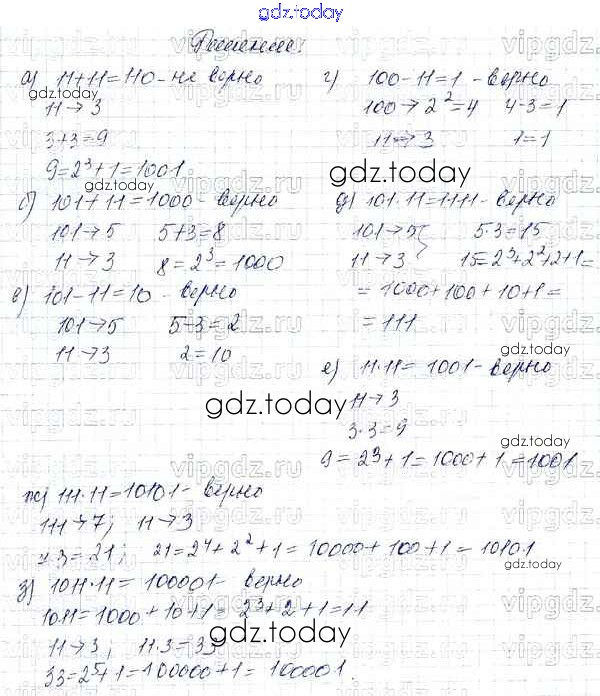 gdz.today
Решение:
а) 11+11=110 - не верно
11→3
3+3=9
9=2³+1=1001
б) 101+11=1000 - верно
101→5 5+3=8
11→3 8=2³=1000
в) 101-11=10 - верно
101→5 5-3=2
11→3 2=10
г) 100-11=1 - верно
100→2²=4 4-3=1
11→3 1=1
д) 101·11=1111 - верно
101→5 5·3=15
11→3 15=2³+2²+2+1=
=1000+100+10+1=
=111
е) 11·11=1001 - верно
11→3
3·3=9
9=2³+1=1000+1=1001
ж) 111·11=10101 - верно
111→7; 11→3
7·3=21; 21=2⁴+2²+1=10000+100+1=10101
з) 1011·11=100001 - верно
1011=1000+10+1=2³+2+1=11
11→3; 11·3=33
33=2⁵+1=100000+1=100001.
gdz.today
gdz.today
gdz.today
gdz.today
gdz.today
gdz.today
gdz.today